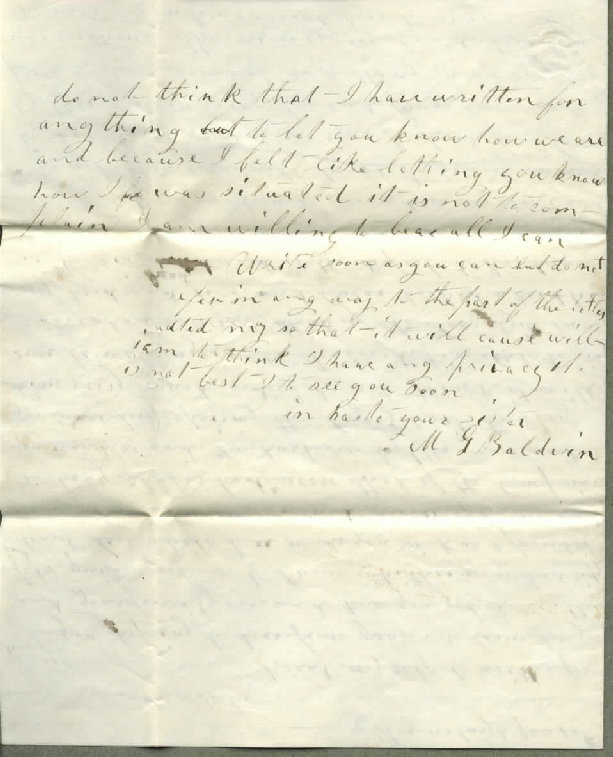 do not think that I have written for
any thing but to let you know how we are
and because I felt like letting you know
how I was situated it is not to com-
plain I am willing to bear all I can
Write soon as you can but do not
in any way to the part of the letter
so that it will cause will-
iam to think I have any privacy it
is not best I to see you soon
in haste your sister
M G Baldwin